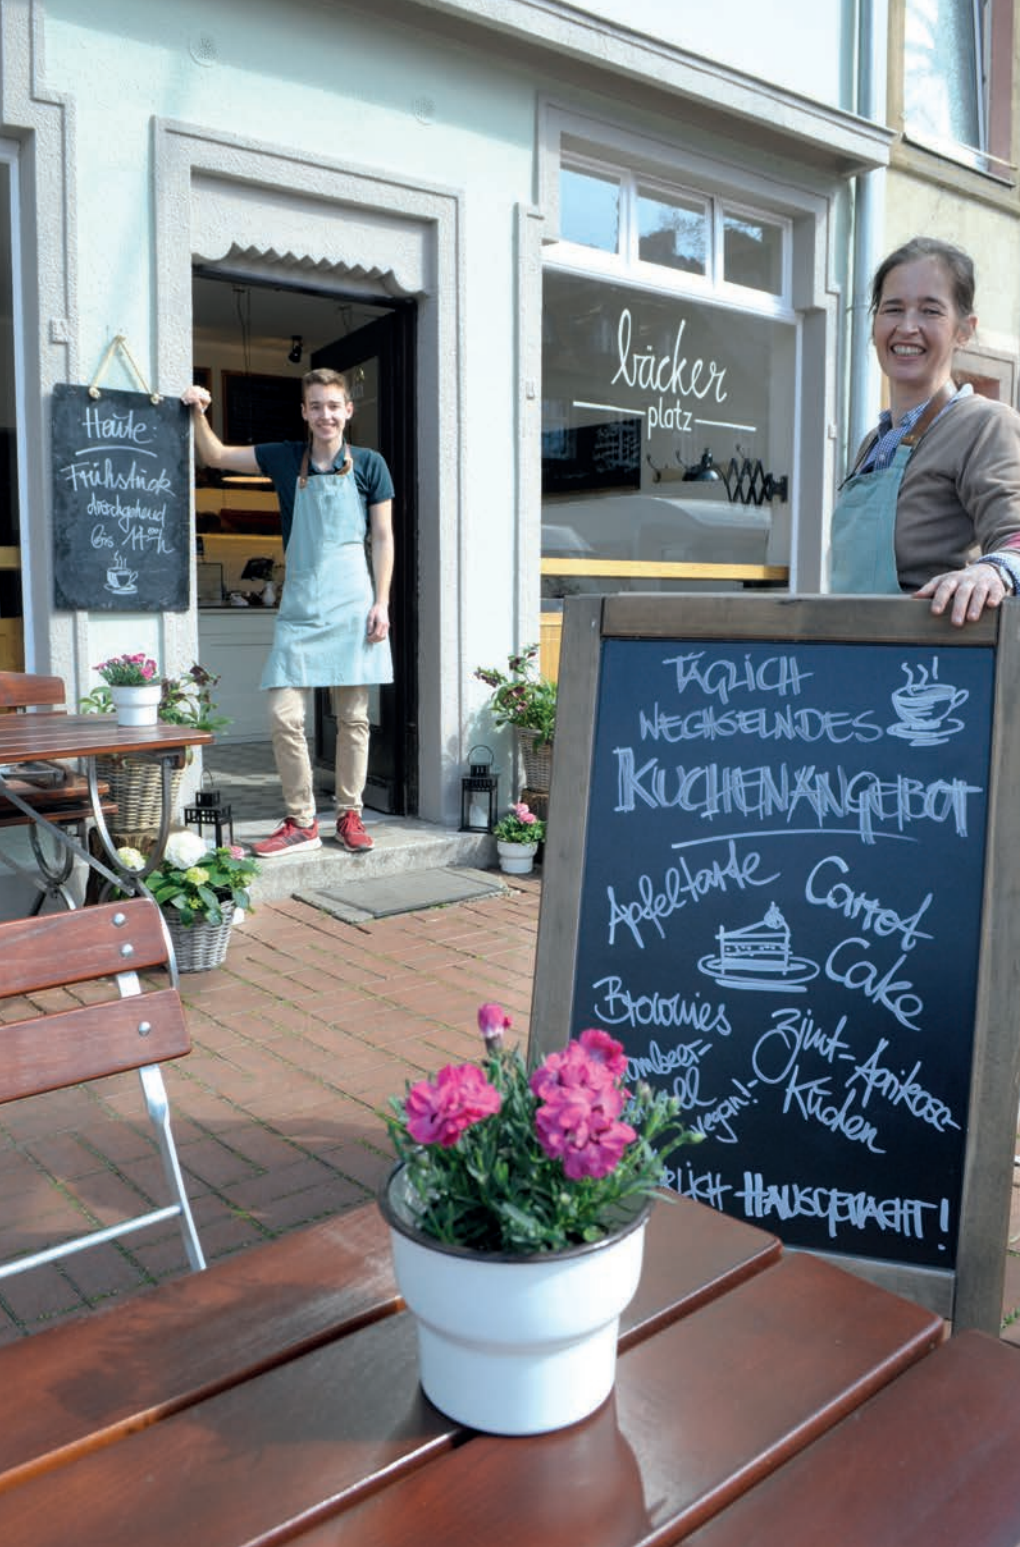 Heute:
Frühstück
durchgehend
bis 17⁰⁰h
bäcker
platz
TÄGLICH
WECHSELNDES
KUCHENANGEBOT
Apfeltarte
Carrot
Cake
Brownies
Zimt-Aprikose-
Kuchen
vegan!-
HAUSGEMACHT!